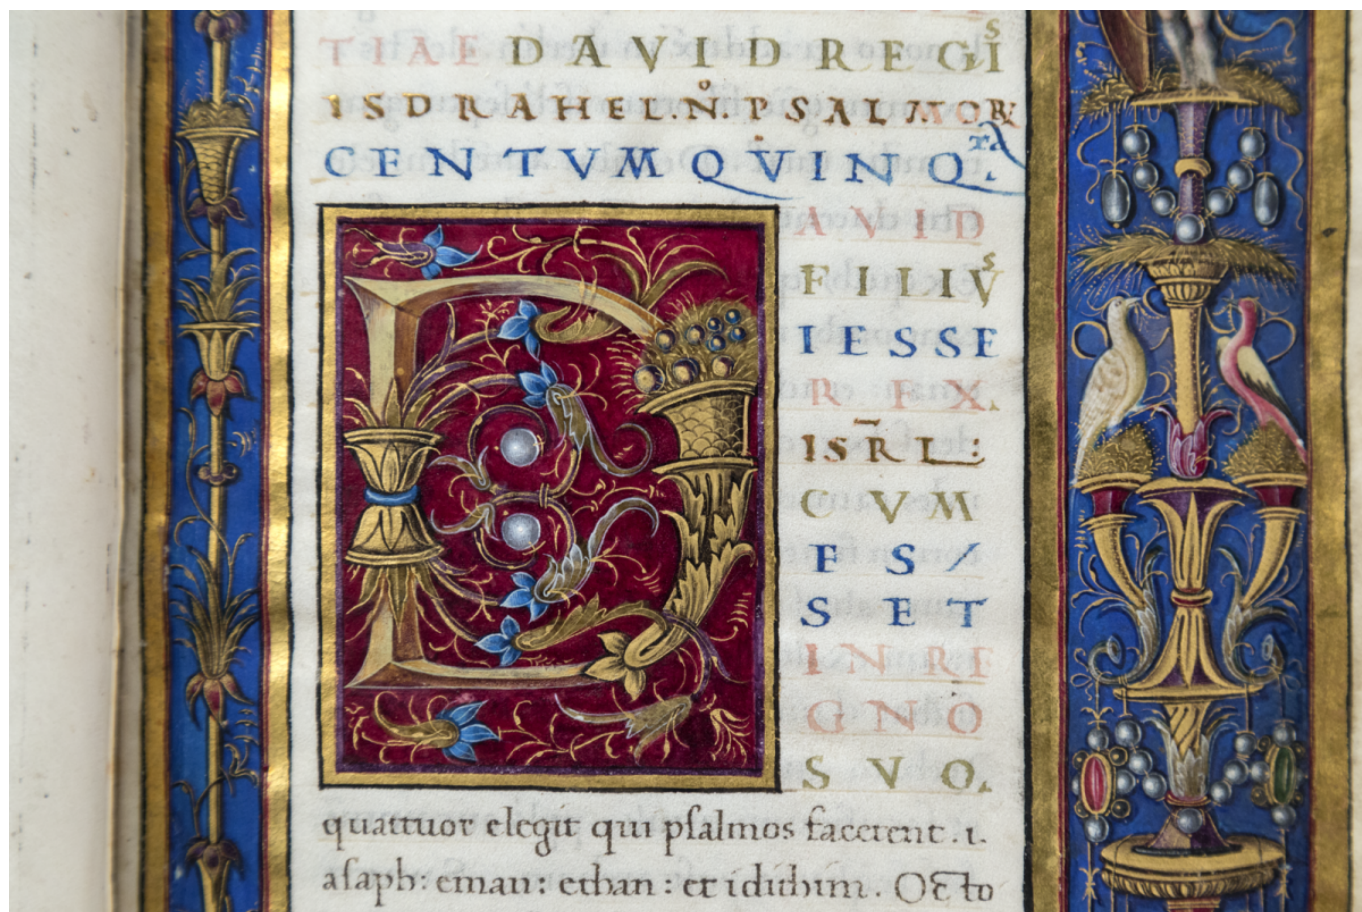 TIAE DAVID REGIS
ISDRAHEL.N̊.PSALMORꝫ
CENTVM QVINQ.ta
DAVID
FILIVS
IESSE
REX.
ISR̄L:
CVM
ES/
SET
IN RE
GNO
SVO.
quattuor elegit qui pſalmos facerent .ı.
aſaph: eman: ethan: et idithim. Octo